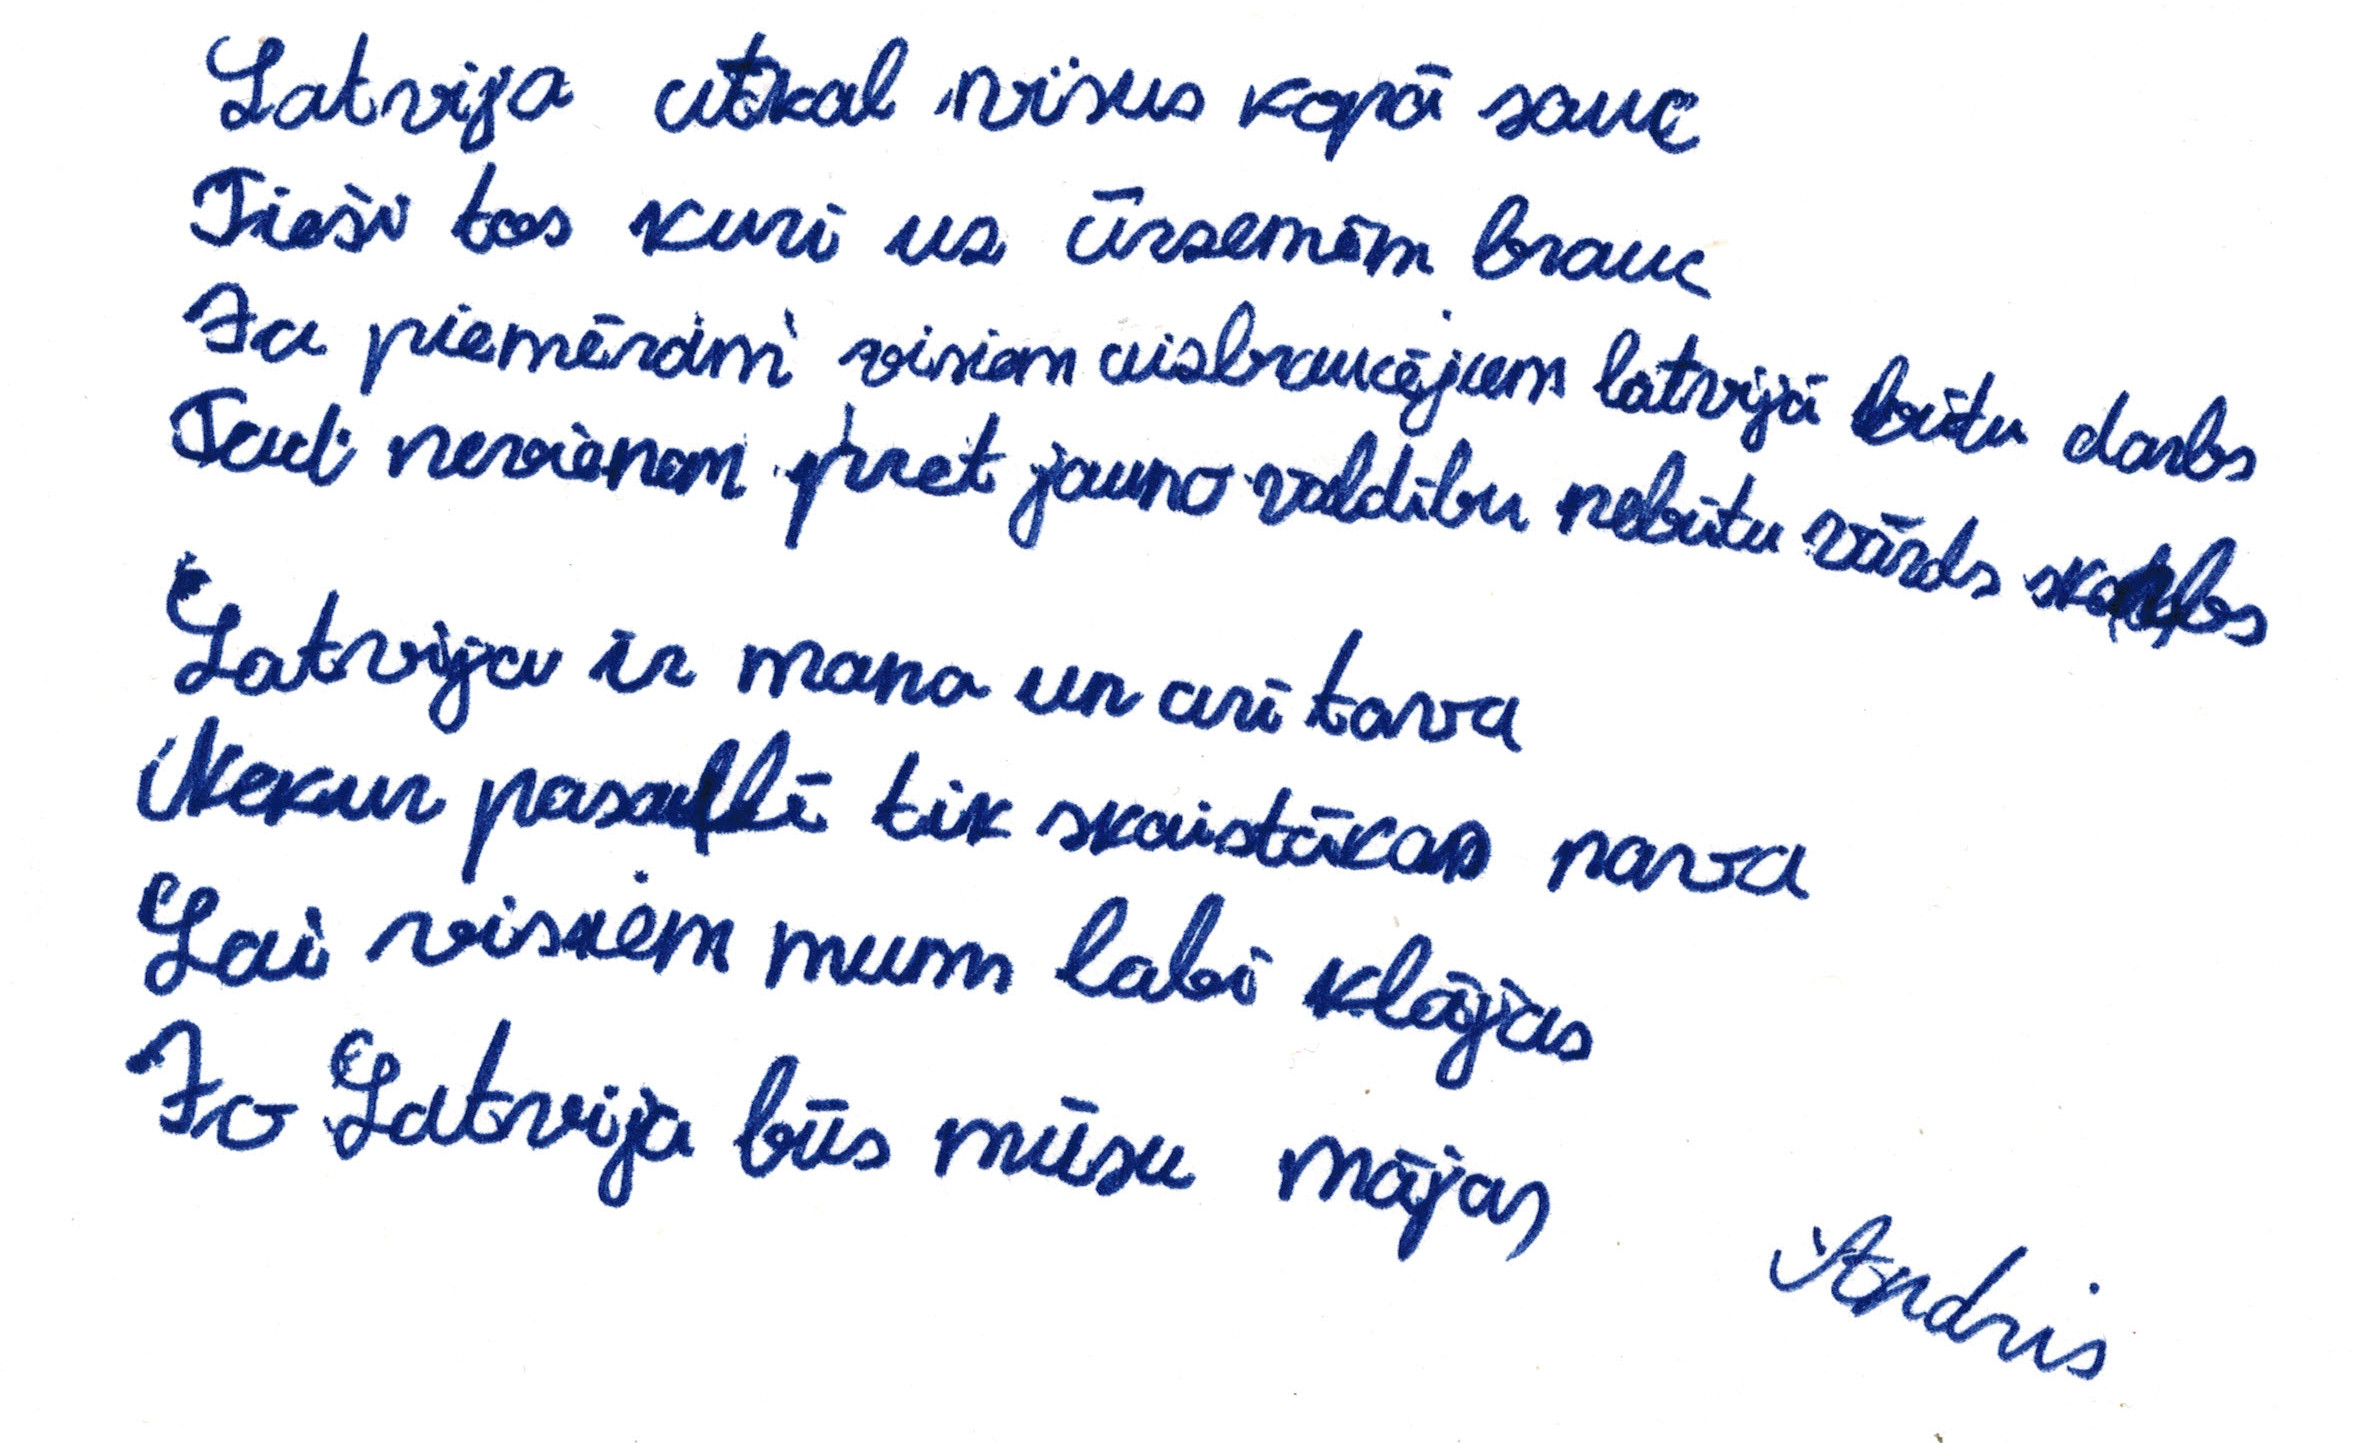 Latvija atkal visus kopā sauc
Tieši tos kuri uz ārzemēm brauc
Ja piemēram visiem aizbraucējiem latvijā būtu darbs
Tad nevienam pret jauno valdību nebūtu vārds skarbs
Latvija ir mana un arī tava
Nekur pasaulē tik skaistākas nava
Lai visiem mums labi klājas
Jo Latvija būs mūsu mājas
Andris